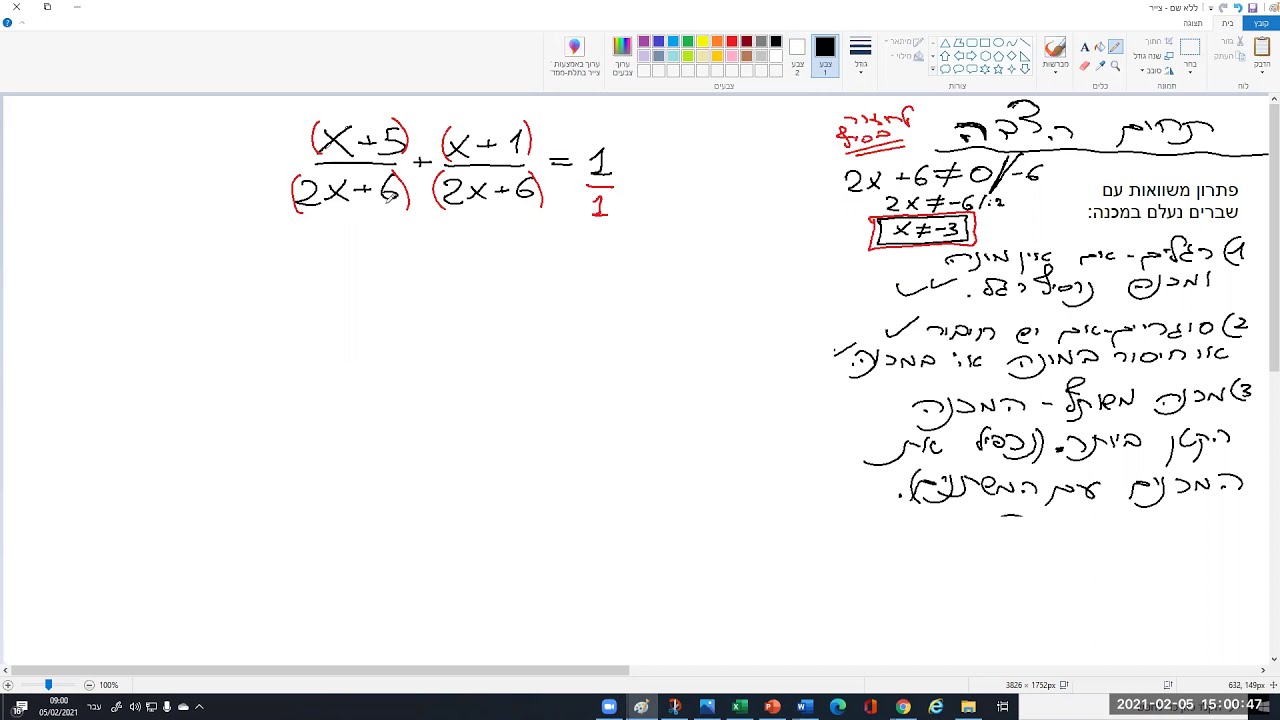 ללא שם - צייר
קובץ
בית
תצוגה
הדבק
גזור
העתק
לוח
בחר
חיתוך
שנה גודל
סובב
תמונה
כלים
מברשות
צורות
מיתאר
מילוי
גודל
צבע 1
צבע 2
ערוך צבעים
צבעים
ערוך באמצעות צייר בתלת-ממד
(x+5)/(2x+6) + (x+1)/(2x+6) = 1/1
תחום הצבה
לחזור בסוף
2x+6≠0 /-6
2x≠-6 /:2
x≠-3
פתרון משוואות עם
שברים נעלם במכנה:
1) רגליים - אם אין מונה
ומכנה נוסיף רגל.
2) סוגריים - אם יש חיבור
או חיסור במונה או במכנה.
3) מכנה משותף - המכנה
הקטן ביותר. (נכפיל את
המכנים עם המשתנים).
100%
3826 × 1752px
632, 149px
09:00
05/02/2021
עבר
16
2021-02-05 15:00:47